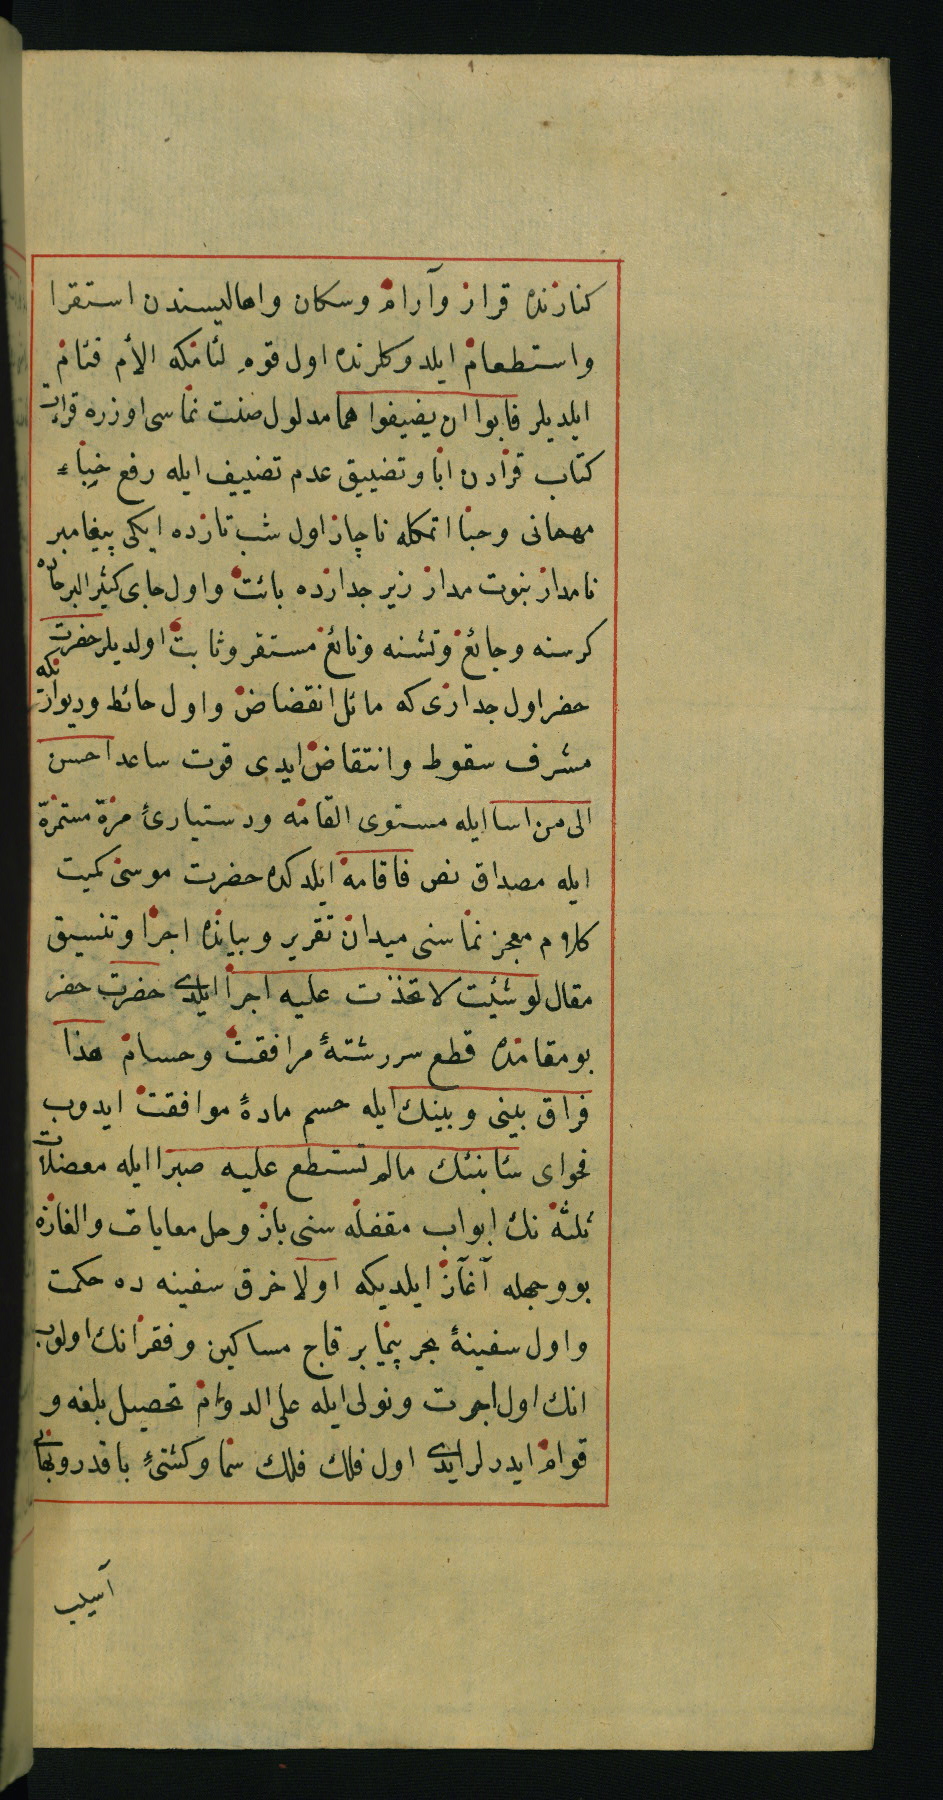 كنارنده قرار وآرام وسكان واهاليسندن استقرا
واستطعام ايلدوكلرنده اول قوم لئامكه الأم فئام
ايلديلر فابوا ان يضيفوا هما مدلول صنت نماسى اوزره قراءت
كتاب قرادن ابا وتضييق عدم تضييف ايله رفع خباء
مهمانى وحبا اتمكله ناچار اول شب تارده ايكى پيغامبر
نامدار نبوت مدار زير جدارده بائت واول جاى كثير البرحاده
كرسنه وجائع وتشنه ونائع مستقر وثابت اولديلر حضرت
خضر اول جدارى كه مائل انقضاض واول حائط وديوارنكه
مشرف سقوط وانتقاض ايدى قوت ساعد احسن
الى من اسا ايله مستوى القامه ودستيارئ مرة مستمرة
ايله مصداق نص فاقامه ايلدكده حضرت موسى كميت
كلام معجز نماسنى ميدان تقرير وبيانده اجرا وتنسيق
مقال لو شئت لاتخذت عليه اجرا ايلدى حضرت خضر
بو مقامده قطع سررشتۀ مرافقت وحسام هذا
فراق بينى وبينك ايله حسم مادۀ موافقت ايدوب
فحواى سأنبئك مالم تستطع عليه صبرا ايله معضلات
ثلثه نك ابواب مقفله سنى باز وحل معايات والغازه
بو وجهله آغاز ايلديكه اولا خرق سفينه ده حكمت
واول سفينۀ بحر پيما بر قاج مساكين وفقرانك اولوب
انك اول اجرت ونولى ايله على الدوام تحصيل بلغه و
قوام ايدرلر ايدى اول فلك فلك سما وكشتئ باقدروبهايى
آسيب